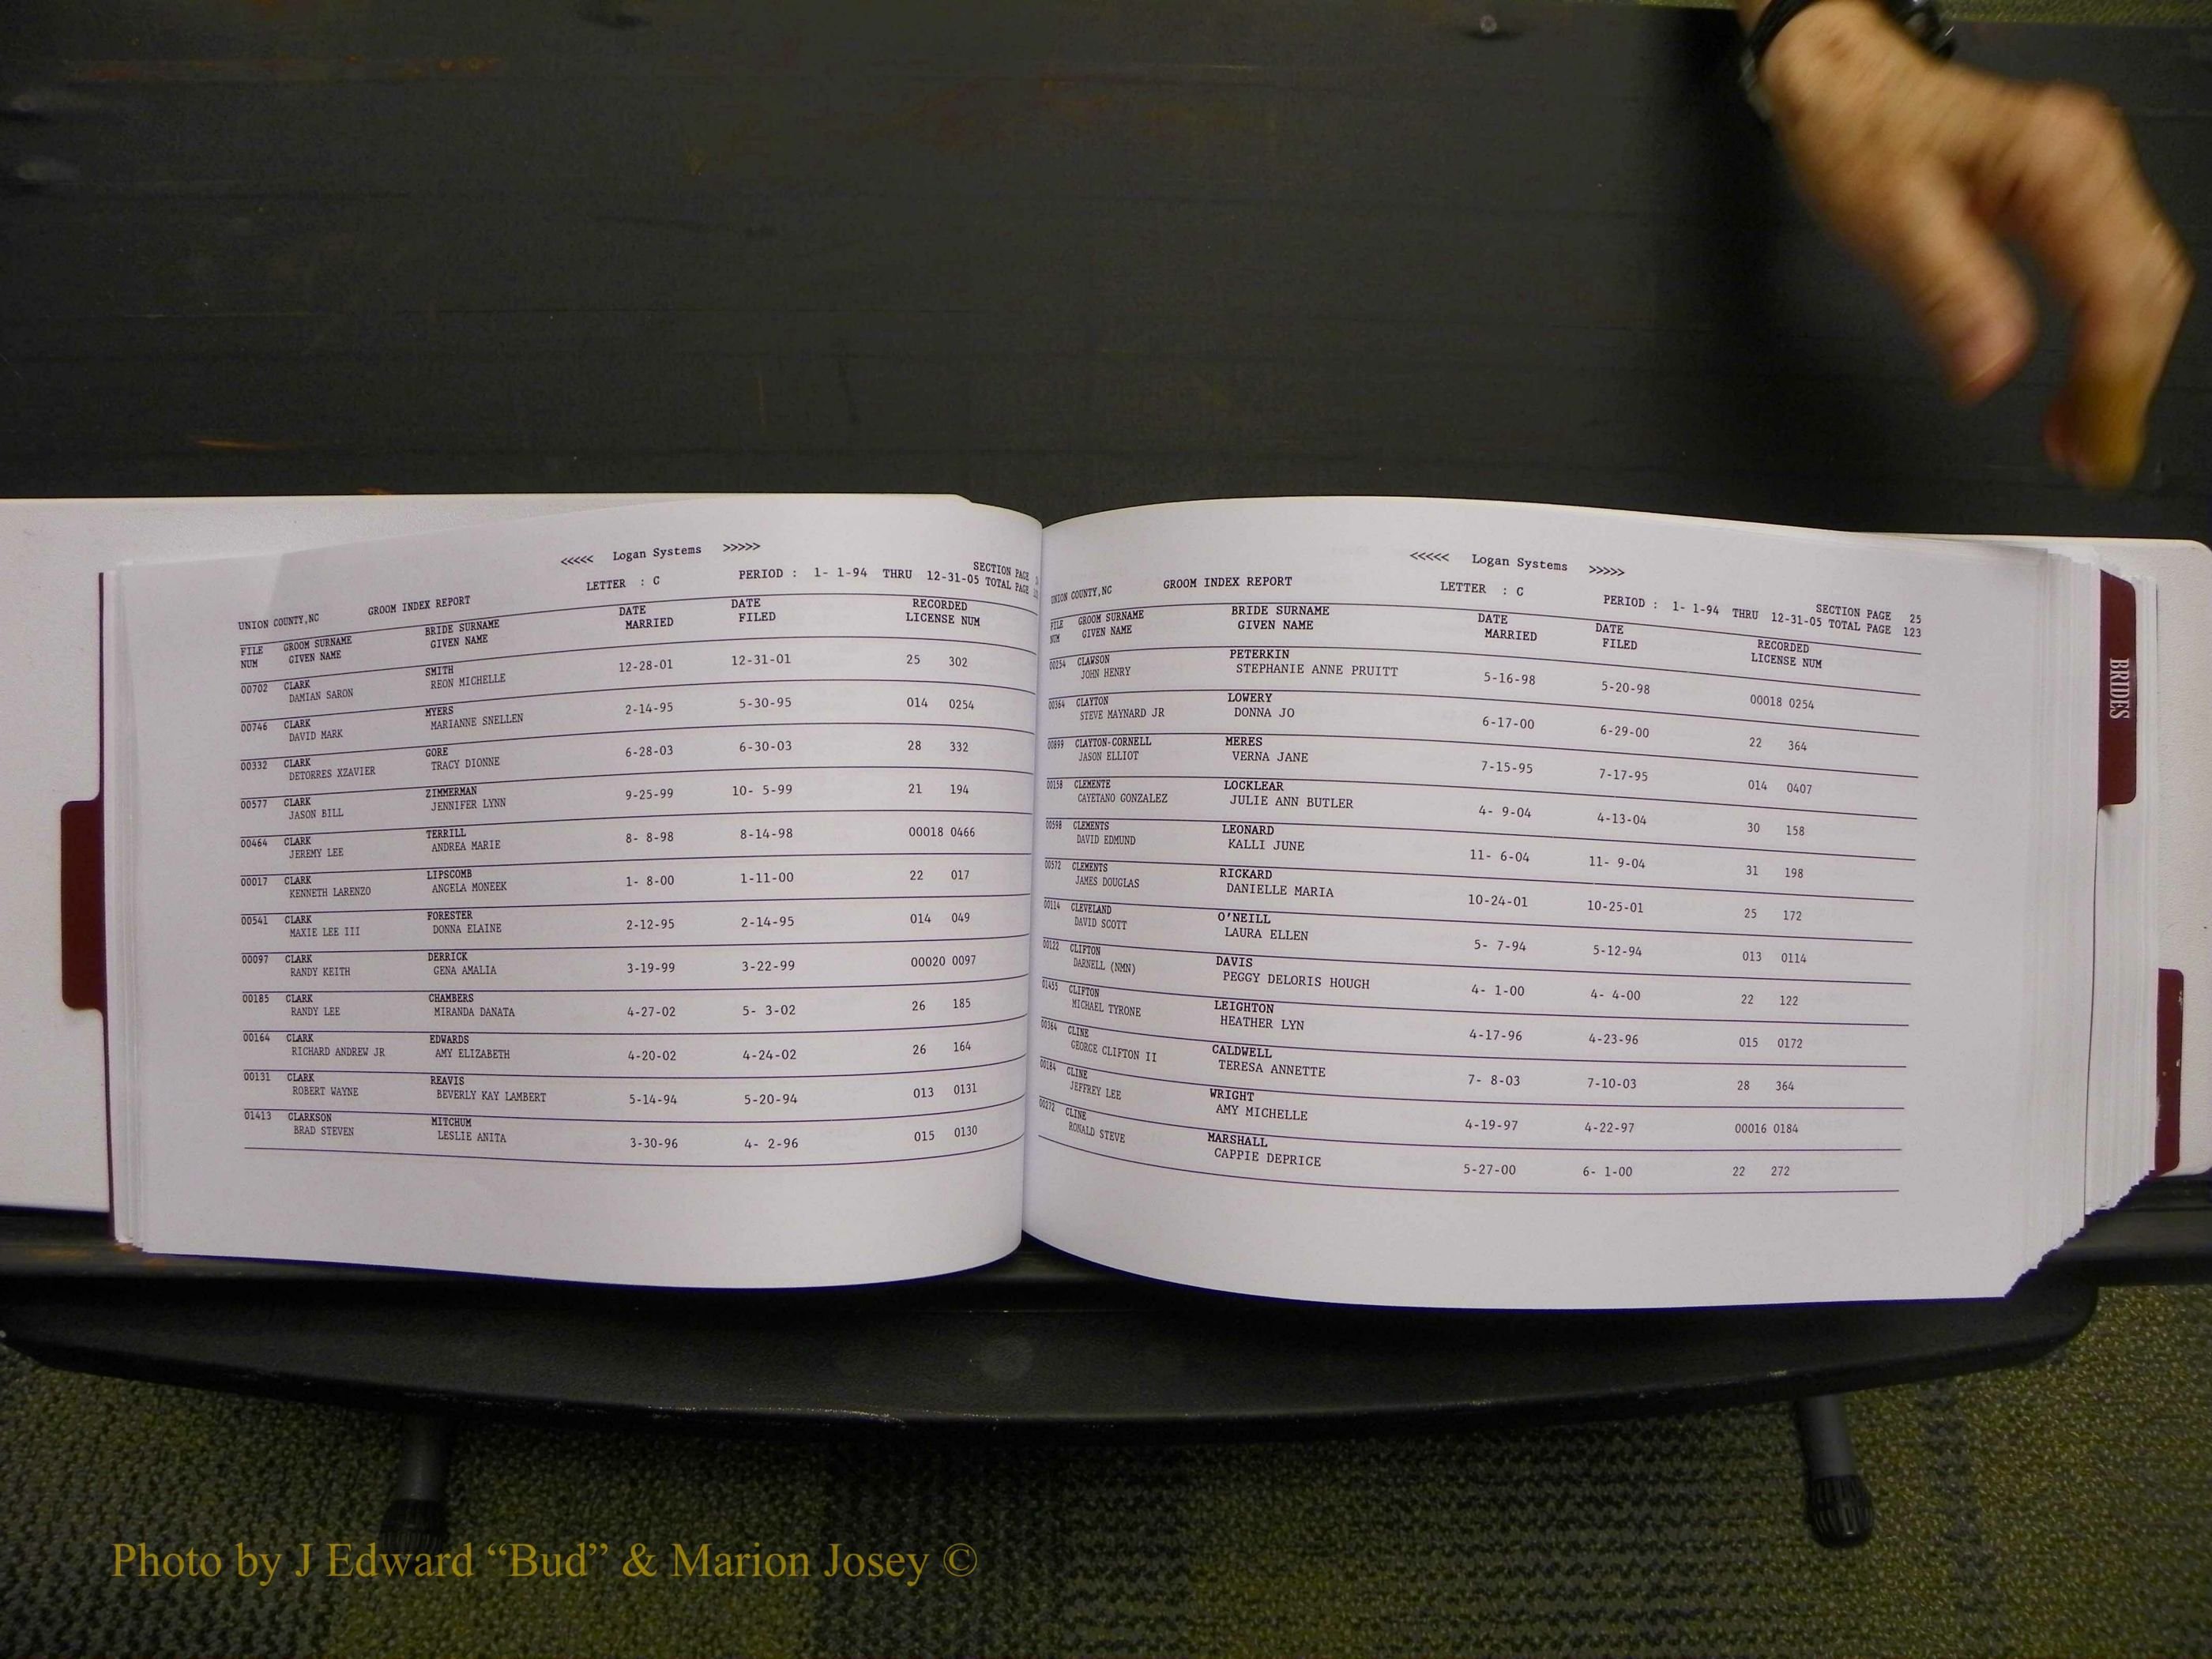 <<<<< Logan Systems >>>>>
SECTION PAGE
LETTER : C PERIOD : 1- 1-94 THRU 12-31-05 TOTAL PAGE
UNION COUNTY,NC GROOM INDEX REPORT
FILE GROOM SURNAME BRIDE SURNAME DATE DATE RECORDED
NUM GIVEN NAME GIVEN NAME MARRIED FILED LICENSE NUM
00702 CLARK SMITH 12-28-01 12-31-01 25 302
DAMIAN SARON REON MICHELLE
00746 CLARK MYERS 2-14-95 5-30-95 014 0254
DAVID MARK MARIANNE SNELLEN
00332 CLARK GORE 6-28-03 6-30-03 28 332
DETORRES XZAVIER TRACY DIONNE
00577 CLARK ZIMMERMAN 9-25-99 10- 5-99 21 194
JASON BILL JENNIFER LYNN
00464 CLARK TERRILL 8- 8-98 8-14-98 00018 0466
JEREMY LEE ANDREA MARIE
00017 CLARK LIPSCOMB 1- 8-00 1-11-00 22 017
KENNETH LARENZO ANGELA MONEEK
00541 CLARK FORESTER 2-12-95 2-14-95 014 049
MAXIE LEE III DONNA ELAINE
00097 CLARK DERRICK 3-19-99 3-22-99 00020 0097
RANDY KEITH GENA AMALIA
00185 CLARK CHAMBERS 4-27-02 5- 3-02 26 185
RANDY LEE MIRANDA DANATA
00164 CLARK EDWARDS 4-20-02 4-24-02 26 164
RICHARD ANDREW JR AMY ELIZABETH
00131 CLARK REAVIS 5-14-94 5-20-94 013 0131
ROBERT WAYNE BEVERLY KAY LAMBERT
01413 CLARKSON MITCHUM 3-30-96 4- 2-96 015 0130
BRAD STEVEN LESLIE ANITA
<<<<< Logan Systems >>>>>
SECTION PAGE 25
UNION COUNTY,NC GROOM INDEX REPORT LETTER : C PERIOD : 1- 1-94 THRU 12-31-05 TOTAL PAGE 123
FILE GROOM SURNAME BRIDE SURNAME DATE DATE RECORDED
NUM GIVEN NAME GIVEN NAME MARRIED FILED LICENSE NUM
00254 CLAWSON PETERKIN 5-16-98 5-20-98 00018 0254
JOHN HENRY STEPHANIE ANNE PRUITT
00364 CLAYTON LOWERY 6-17-00 6-29-00 22 364
STEVE MAYNARD JR DONNA JO
00899 CLAYTON-CORNELL MERES 7-15-95 7-17-95 014 0407
JASON ELLIOT VERNA JANE
00158 CLEMENTE LOCKLEAR 4- 9-04 4-13-04 30 158
CAYETANO GONZALEZ JULIE ANN BUTLER
00598 CLEMENTS LEONARD 11- 6-04 11- 9-04 31 198
DAVID EDMUND KALLI JUNE
00572 CLEMENTS RICKARD 10-24-01 10-25-01 25 172
JAMES DOUGLAS DANIELLE MARIA
00114 CLEVELAND O'NEILL 5- 7-94 5-12-94 013 0114
DAVID SCOTT LAURA ELLEN
00122 CLIFTON DAVIS 4- 1-00 4- 4-00 22 122
DARNELL (NMN) PEGGY DELORIS HOUGH
01455 CLIFTON LEIGHTON 4-17-96 4-23-96 015 0172
MICHAEL TYRONE HEATHER LYN
00364 CLINE CALDWELL 7- 8-03 7-10-03 28 364
GEORGE CLIFTON II TERESA ANNETTE
00184 CLINE WRIGHT 4-19-97 4-22-97 00016 0184
JEFFREY LEE AMY MICHELLE
00272 CLINE MARSHALL 5-27-00 6- 1-00 22 272
RONALD STEVE CAPPIE DEPRICE
BRIDES
Photo by J Edward “Bud” & Marion Josey ©